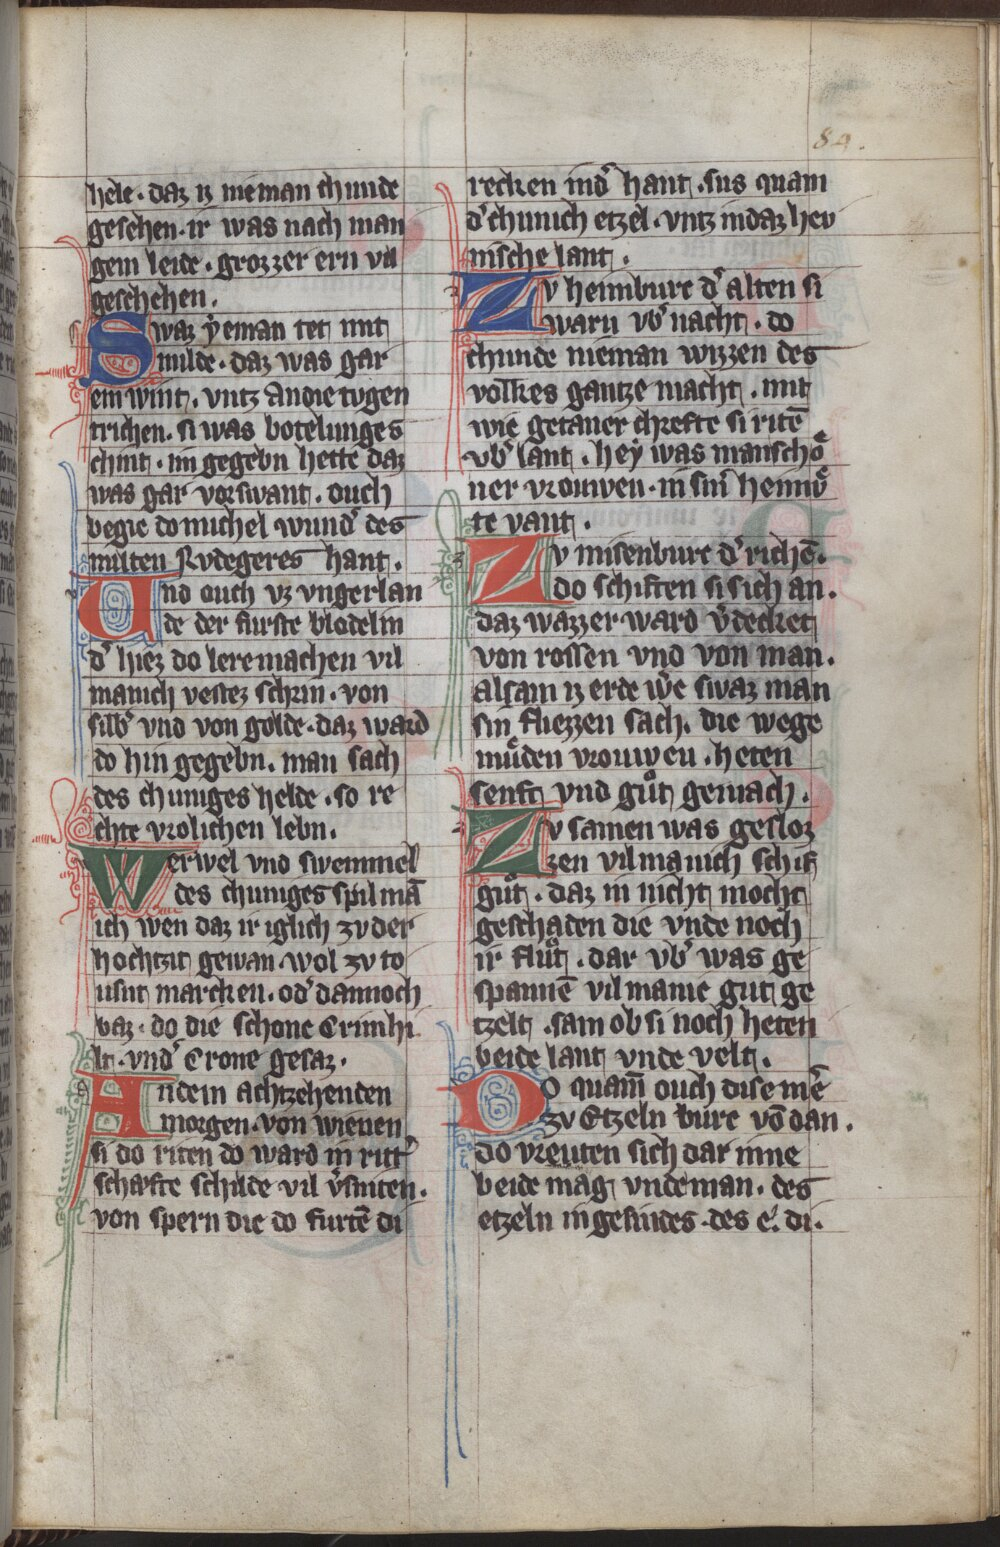 84.
hele · daz iz nieman chunde
geschen · ir was nach man
gem leide · grozzer ern vil
geschehen .
Swaz ẏeman tet mit
milde · daz was gar
em wint . vntz an die tvgen
trichen . si was botelunges
chint · im gegebn hette daz
was gar vorswant . ouch
begie do michel wund͛ des
milten Rvdegeres hant .
Vnd ouch vz vngerlan
de der furste blodelin
d͛ hiez do lere machen vil
manich vestez schrin · von
silb͛ vnd von golde · daz ward
do hin gegebn . man sach
des chuniges helde . so re
chte vrolichen lebn .
Werwel vnd swemmel
des chuniges spilmā
ich wen daz ir iglich zv der
hochtzit gewan · wol zv to
usnt marcken . od͛ dannoch
baz · do die schone Crimhi
lt · vnd͛ Crone gesaz .
An dem achtzehenden
morgen · von wienen
si do riten do ward in ritt͛
schafte schilde vil v͛sniten .
von spern die do furtē di
recken in d͛ hant . sus quam
d͛ chunich etzel . vntz in daz hev
nische lant .
Zv heimburc d͛ alten si
warn vb͛ nacht . do
chunde nieman wizzen des
volkes gantze macht . mit
wie getaner chrefte si ritē
vb͛ lant . heẏ was man scho
ner vrouwen · in sin͛ heimv͛
te vant .
Zv misenburc d͛ richē .
do schiften si sich an .
daz wazzer ward v͛decket
von rossen vnd von man .
alsam iz erde we͛ swaz man
sin fliezzen sach . die wege
muͤden vrouwen . heten
senft vnd guͦt gemach .
Zv samen was gesloz
zen vil manich schif
guͦt . daz in nicht mocht
geschaden die vnde noch
ir fluͦt . dar vb͛ was ge
spannē vil manic gut ge
tzelt . sam ob si noch heten
beide lant vnde velt .
Do quam̄ ouch dise me͛
zv Etzeln burc vō dan .
do vreuten sich dar inne
beide mag vnde man . des
etzeln ingesindes · des e͛ . di .